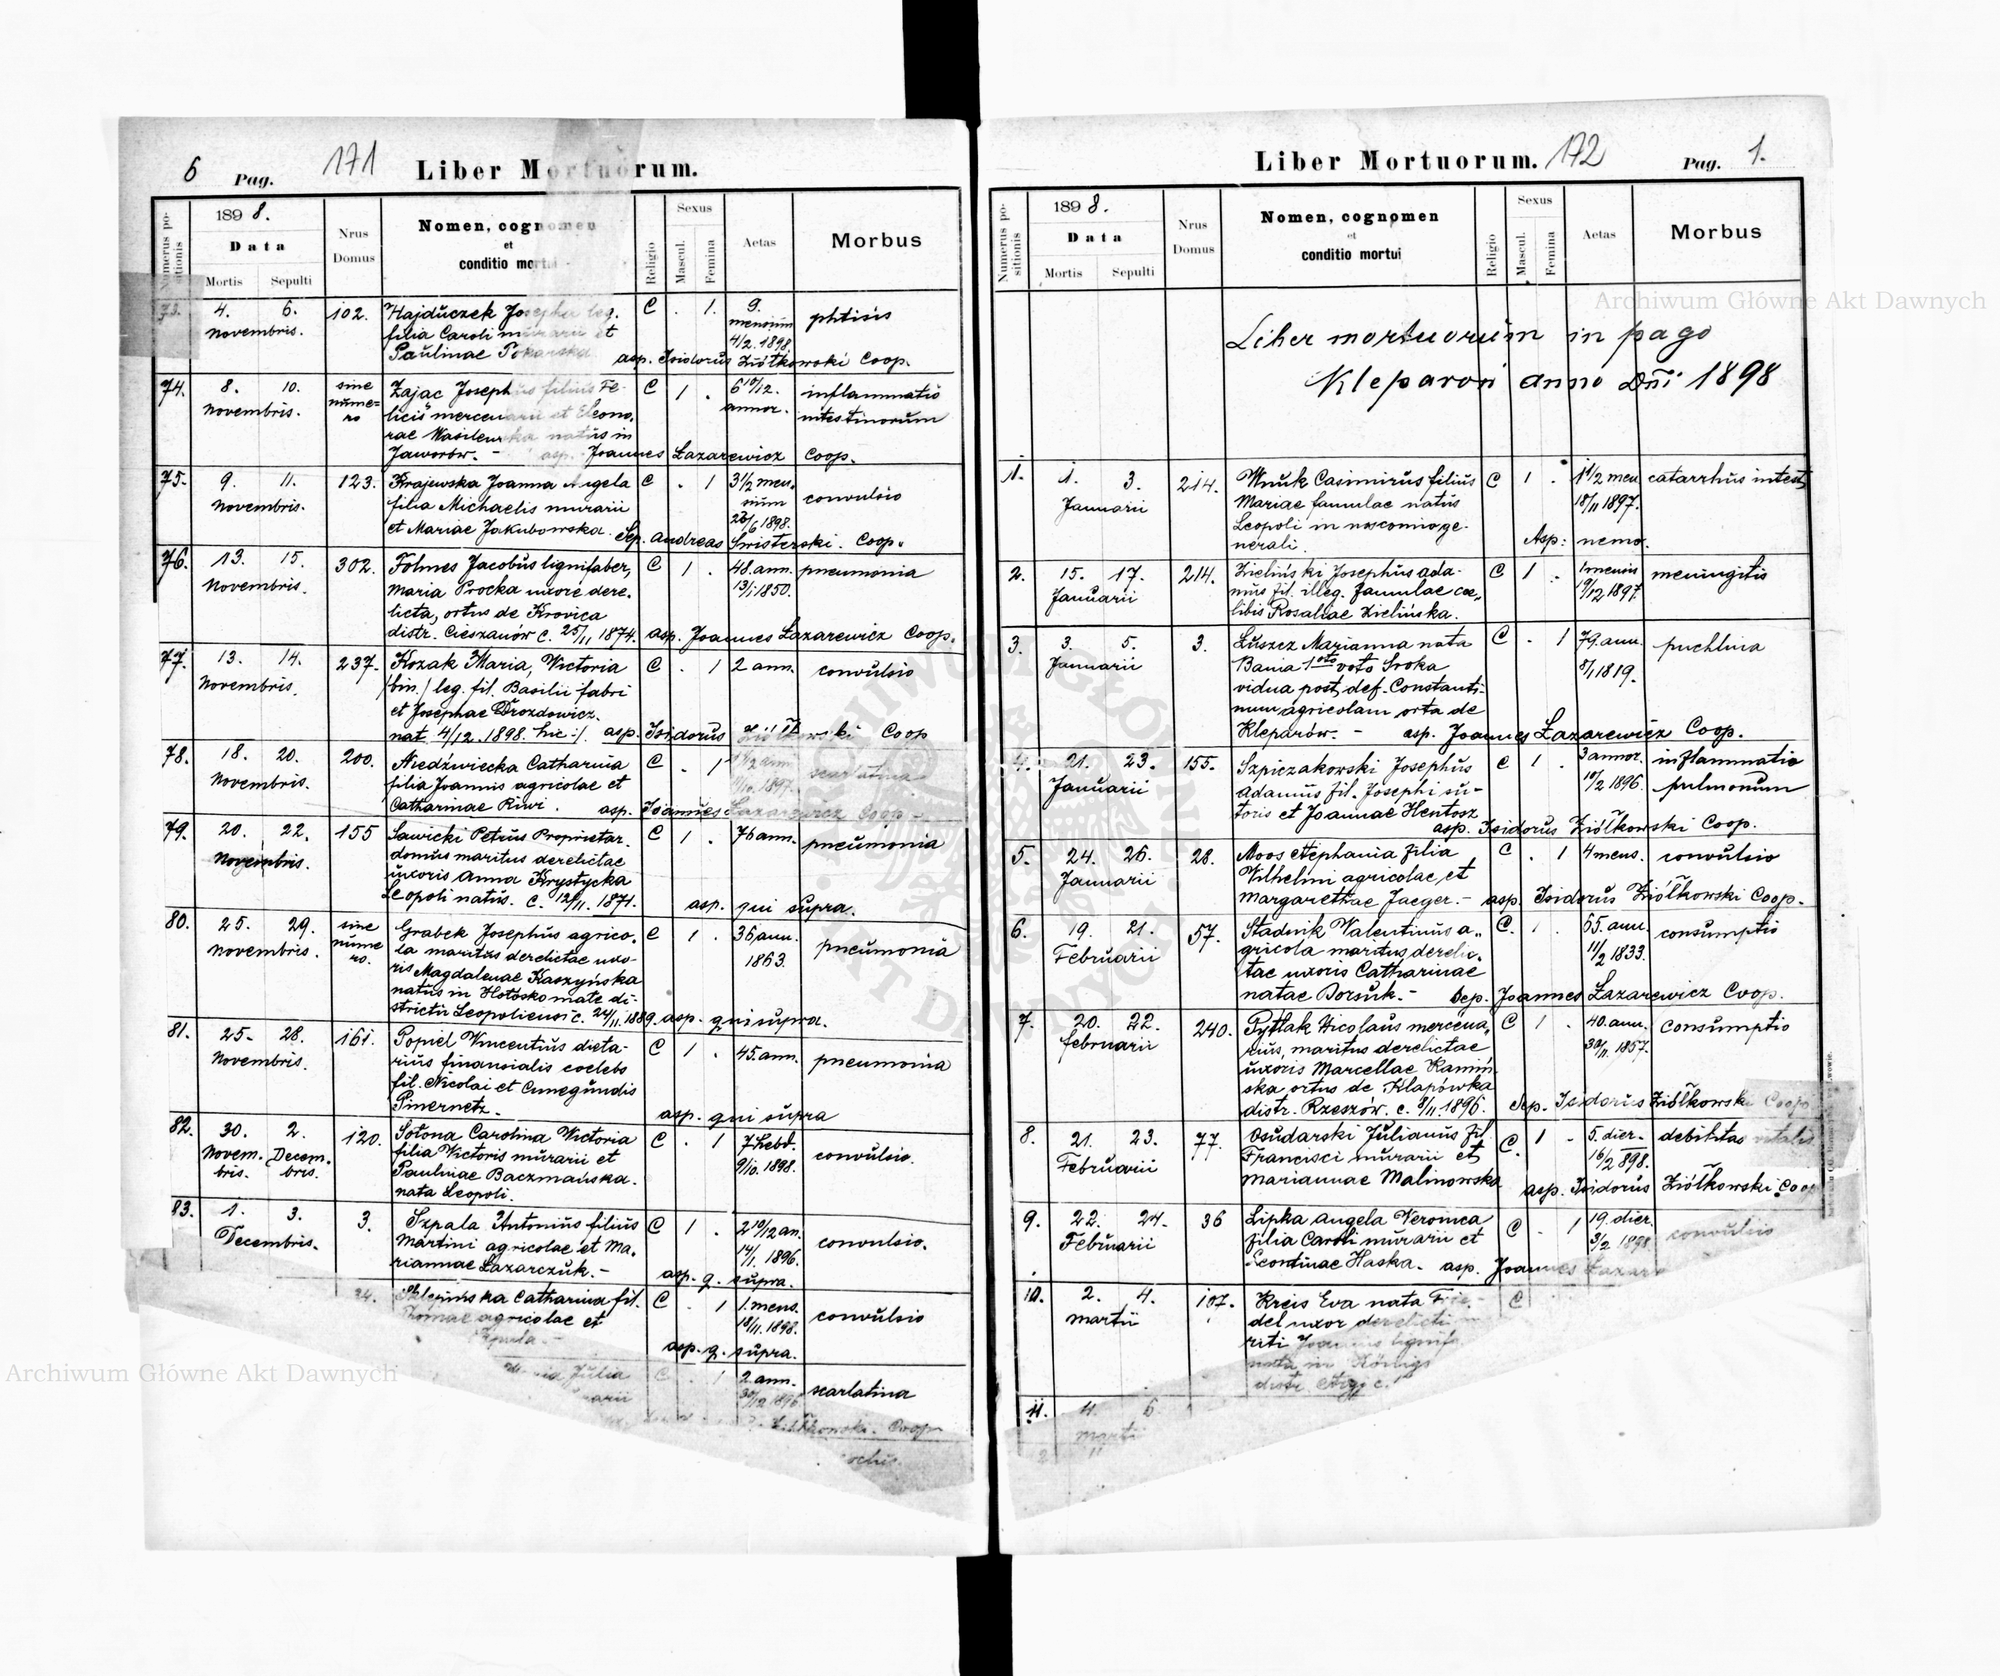 6 Pag. 171 Liber Mortuorum.
Numerus positionis
1898.
Data
Mortis Sepulti
Nrus Domus
Nomen, cognomen
et
conditio mortui
Religio
Sexus
Mascul. Femina
Aetas
Morbus
73. 4. 6. 102. Hajduczek Josepha leg. C . 1. 9. phtisis
Novembris. filia Caroli murarii et mensium
Paulinae Pokarska 4/2. 1898.
asp. Isidorus Ziółkowski Coop.
74. 8. 10. sine Zajac Josephus filius Fe- C 1 . 6 10/12. inflammatio
Novembris. nume= licis mercenarii et Eleono- annor. intestinorum
ro rae Wasilewska natus in
Jaworów. - asp. Joannes Łazarewicz Coop.
75. 9. 11. 123. Krajewska Joanna Angela C . 1 3 1/2 men- convulsio
Novembris. filia Michaelis murarii nium
et Mariae Jakubowska. 1898.
Sep. Andreas Coop.
76. 13. 15. 302. Folmes Jacobus lignifaber, C 1 . 48. ann. pneumonia
Novembris. Maria Procka uxore dere- 13/1 1850.
licta, ortus de Krovica
distr. Cieszanów c. 25/11 1874. asp. Joannes Łazarewicz Coop.
77. 13. 14. 237. Kozak Maria, Victoria C . 1 2 ann. convulsio
Novembris. /bin./ leg. fil. Basilii fabri
et Josephae Drozdowicz.
nat 4/12. 1898. hic :/. asp. Isidorus Ziółkowski Coop
78. 18. 20. 200. Niedzwiecka Catharina C . 1 scarlatina
Novembris. filia Joannis agricolae et 1897.
Catharinae Kiwi. asp. Joannes Łazarewicz Coop -
79. 20. 22. 155 Sawicki Petrus Proprietar. C 1 . 76 ann. pneumonia
Novembris. domus maritus derelictae
uxoris Anna Krystycka
Leopoli natus. c. 12/11. 1871. asp. qui supra.
80. 25. 29. sine Grabek Josephus agrico- C 1 . 36 ann. pneumonia
Novembris. nume la maritus derelictae uxo- 1863.
ro. ris Magdalenae Kaszyńska
natus in Hołosko małe di-
strictu Leopoliensi c. 24/11. 1889. asp. qui supra.
81. 25. 28. 161. Popiel Vincentius dieta- C 1 . 45. ann. pneumonia
Novembris. rius financialis coelebs
fil. Nicolai et Cunegundis
Pinernetz. - asp. qui supra
82. 30. 2. 120. Sotona Carolina Victoria C . 1 7 hebd. convulsio.
Novem- Decem- filia Victoris murarii et 9/10. 1898.
bris. bris. Paulinae Baczmańska.
nata Leopoli.
83. 1. 3. 3. Szpala Antonius filius C 1 . 2 10/12 an. convulsio.
Decembris. Martini agricolae et Ma- 14/1. 1896.
riannae Lazarczuk. - asp. q. supra.
24. Catharina fil. C . 1 1. mens. convulsio
Thomae agricolae et 18/11. 1898.
asp. q. supra.
Julia C . 1 2. ann. scarlatina
murarii 30/12 1896
Ziółkowski. Coop
Liber Mortuorum. 172 Pag. 1.
Numerus positionis
1898.
Data
Mortis Sepulti
Nrus Domus
Nomen, cognomen
et
conditio mortui
Religio
Sexus
Mascul. Femina
Aetas
Morbus
Liber mortuorum in pago
Kleparov anno Dni 1898
1. 1. 3. 214. Wnuk Casimirus filius C 1 . 1 1/2 men catarrhus intest.
Januarii Mariae famulae natus 18/11 1897.
Leopoli in noscomio ge-
nerali. Asp: nemo.
2. 15. 17. 214. Zieliński Josephus Ada- C 1 . 1 mensis meningitis
Januarii mus fil. illeg. famulae coe- 19/12 1897.
libis Rosaliae Zielińska.
3. 3. 5. 3. Łuszcz Marianna nata C . 1 79. ann. puchlina
Januarii Bania 1oto voto Sroka 8/1 1819.
vidua post def. Constanti-
num agricolam orta de
Kleparów. - asp. Joannes Łazarewicz Coop.
4. 21. 23. 155. Szpiczakowski Josephus C 1 . 3 annor. inflammatio
Januarii Adamus fil. Josephi su- 10/2 1896. pulmonum
toris et Joannae Hentosz
asp. Isidorus Ziółkowski Coop.
5. 24. 26. 28. Moos Stephania filia C . 1 4 mens. convulsio
Januarii Wilhelmi agricolae, et
Margarethae Jaeger. - asp. Isidorus Ziółkowski Coop.
6. 19. 21. 57. Stadnik Valentinus a- C. 1 . 65. ann. consumptio
Februarii gricola maritus derelic- 11/2 1833.
tae uxoris Catharinae
natae Borsuk. - Sep. Joannes Łazarewicz Coop.
7. 20. 22. 240. Pytlak Nicolaus mercena- C 1 . 40. ann. Consumptio
februarii rius, maritus derelictae 30/11. 1857.
uxoris Marcellae Kamiń-
ska ortus de Klapówka
distr. Rzeszów. c. 9/11 1896. Sep. Isidorus Ziółkowski Coop
8. 21. 23. 77. Osudarski Julianus fil. C. 1 - 5. dier. debilitas vitalis
Februarii Francisci murarii et 16/2 898.
Mariannae Malinowska asp. Isidorus Ziółkowski Coop
9. 22. 24. 36 Lipka Angela Veronica C - 1 19. dier. convulsio
Februarii filia Caroli murarii et 3/2 1898
Leontinae Haska. asp. Joannes Łazar
10. 2. 4. 107. Kreis Eva nata C
Martii del uxor derelicti
riti Joannis lignifa
nata in Königs
distr.
11. 4. 6.
Martii
Archiwum Główne Akt Dawnych
Archiwum Główne Akt Dawnych
ARCHIWUM GŁÓWNE AKT DAWNYCH